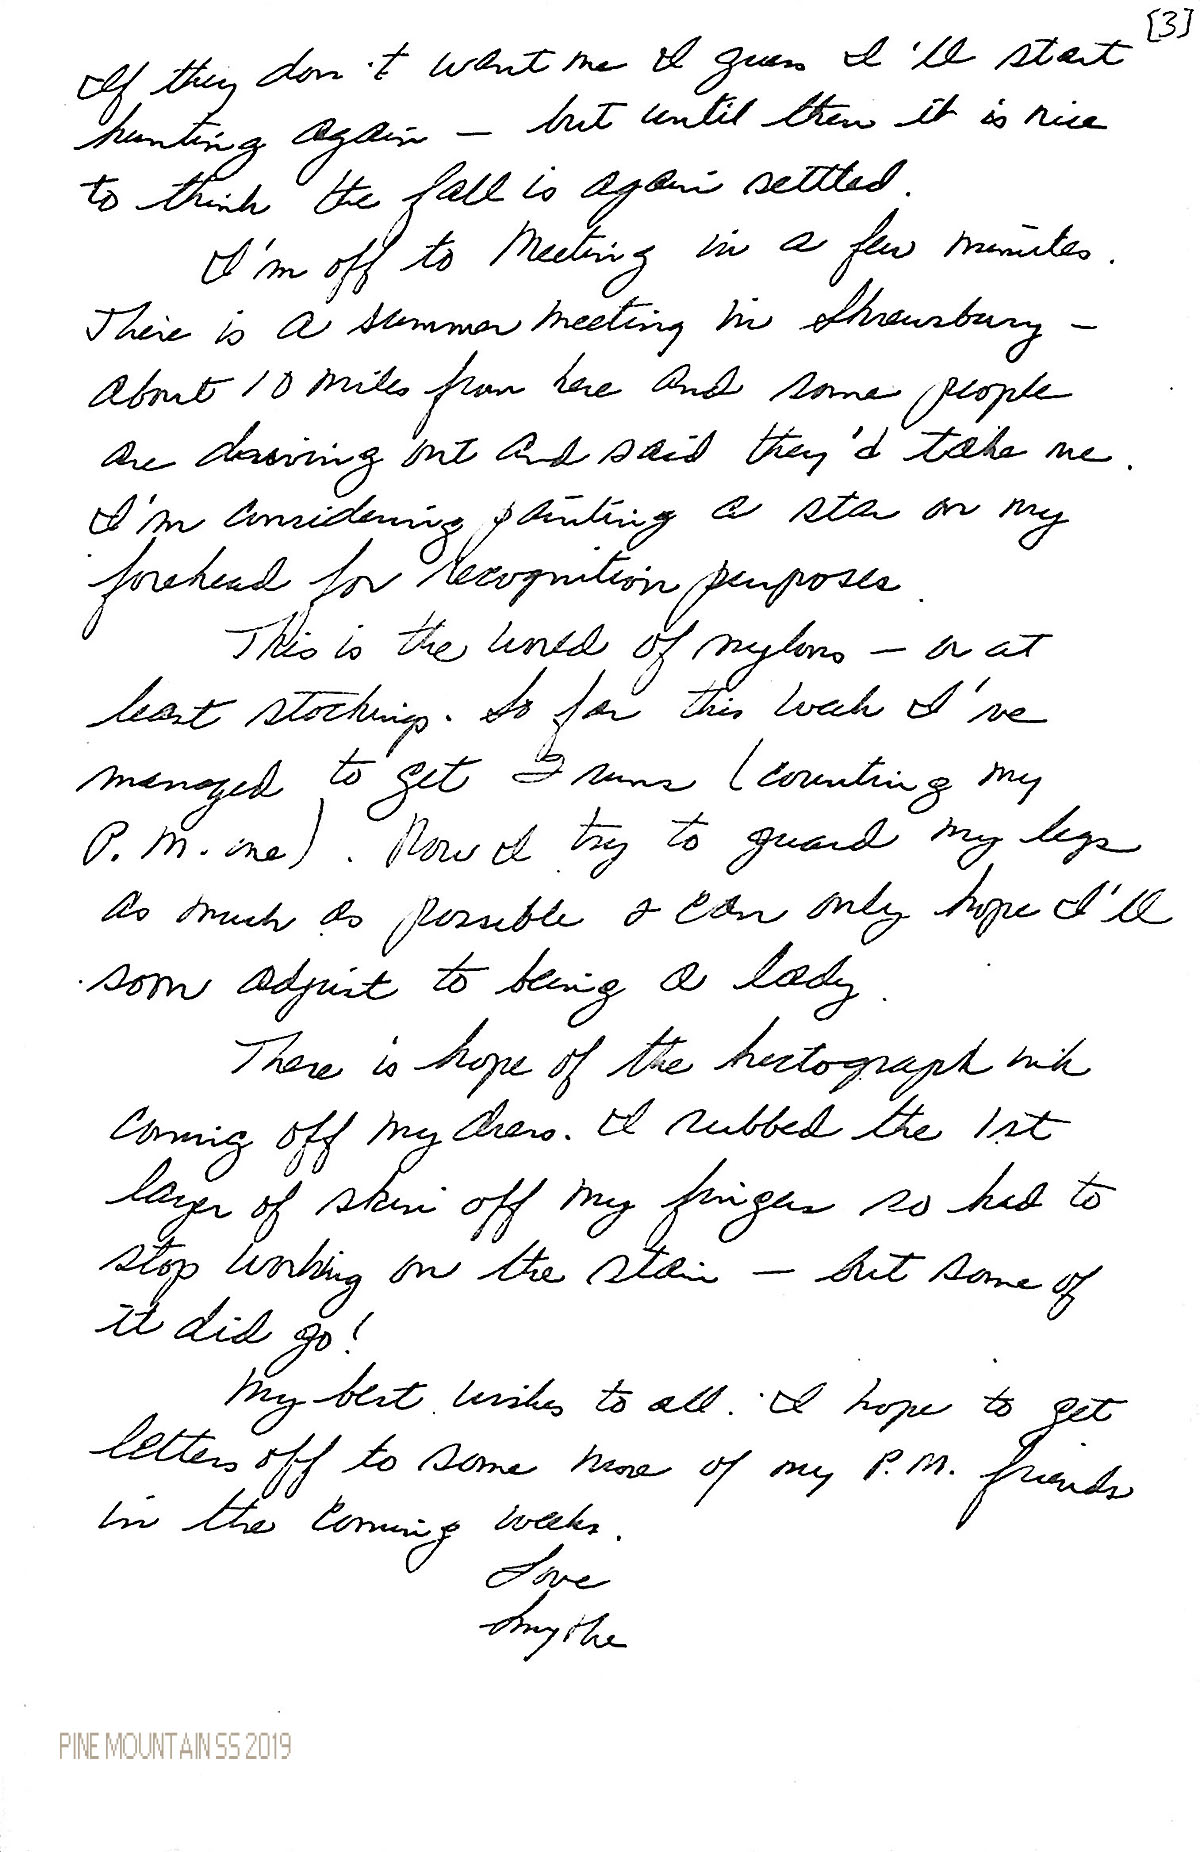 [3]
If they don't want me I guess I'll start
hunting again — but until then it is nice
to think the fall is again settled.
I'm off to Meeting in a few minutes.
There is a summer meeting in Shrewsbury —
about 10 miles from here and some people
are driving out and said they'd take me.
I'm considering painting a star on my
forehead for recognition purposes.
This is the world of nylons — or at
least stockings. So far this week I've
managed to get 2 runs (counting my
P.M. one). Now I try to guard my legs
as much as possible & can only hope I'll
soon adjust to being a lady.
There is hope of the hectograph ink
coming off my dress. I rubbed the 1st
layer of skin off my fingers so had to
stop working on the stain — but some of
it did go!
My best wishes to all. I hope to get
letters off to some more of my P.M. friends
in the coming weeks.
Love
Smythe
PINE MOUNTAIN SS 2019